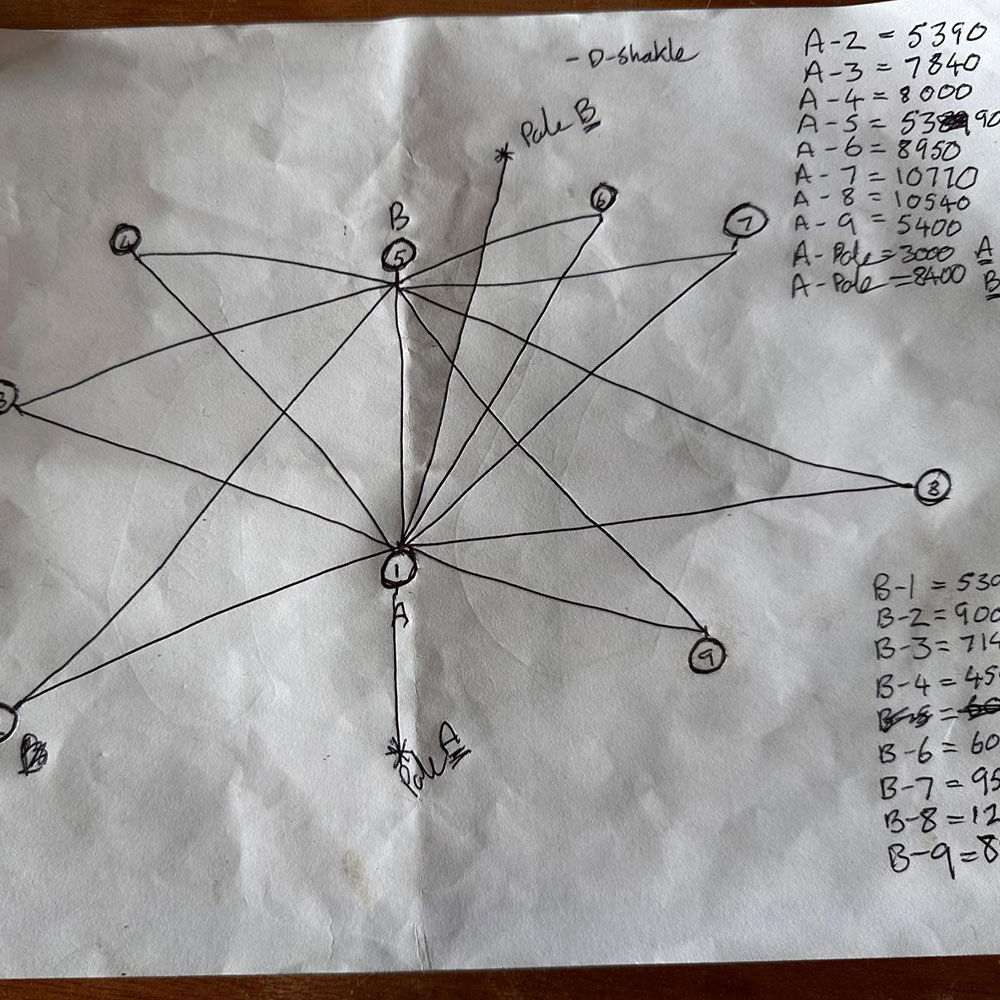 - D-shakle
A-2 = 5390
A-3 = 7840
A-4 = 8000
A-5 = 5390
A-6 = 8950
A-7 = 10770
A-8 = 10540
A-9 = 5400
A-Pole = 3000 A
A-Pole = 8400 B
Pole B
6
7
B
4
5
3
8
1
A
9
Pole A
B-1 = 530
B-2 = 900
B-3 = 714
B-4 = 45
B-6 = 60
B-7 = 95
B-8 = 12
B-9 = 8